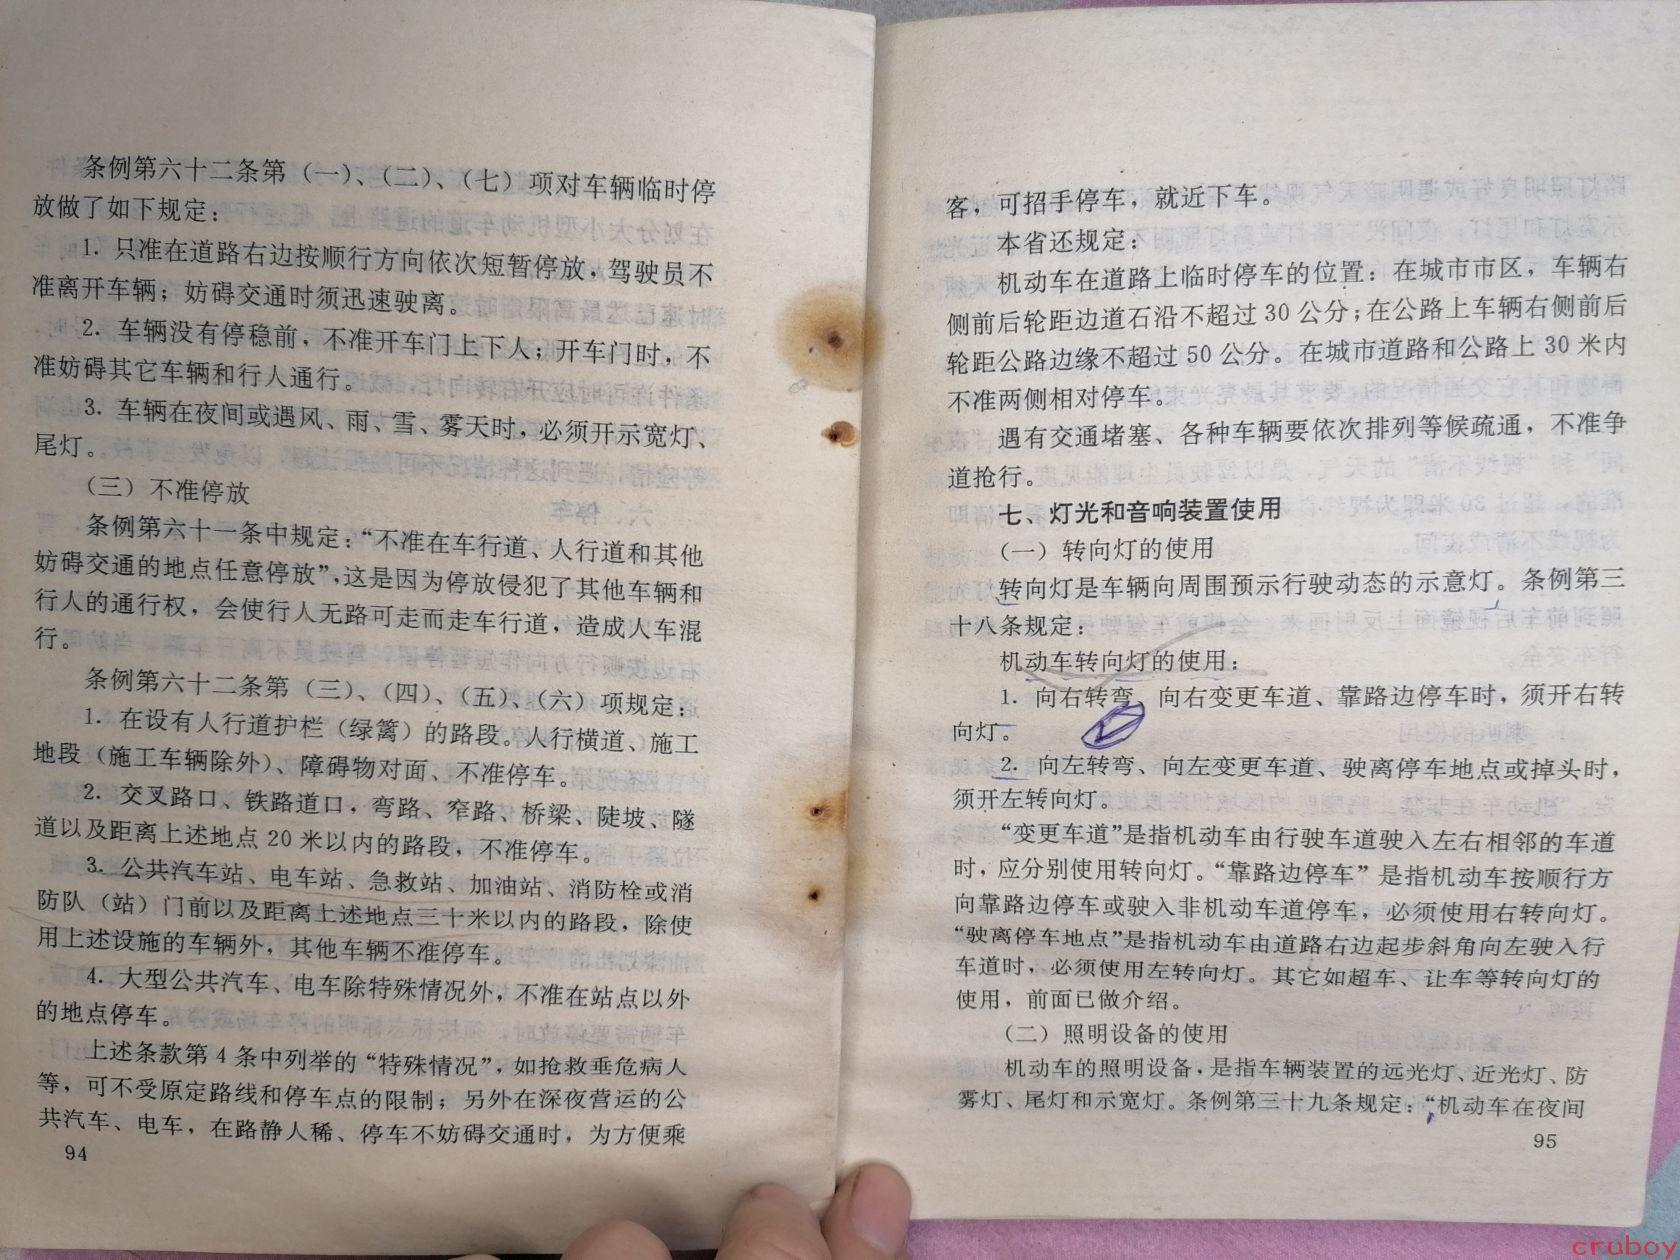 条例第六十二条第（一）、（二）、（七）项对车辆临时停
放做了如下规定：
1. 只准在道路右边按顺行方向依次短暂停放，驾驶员不
准离开车辆；妨碍交通时须迅速驶离。
2. 车辆没有停稳前，不准开车门上下人；开车门时，不
准妨碍其它车辆和行人通行。
3. 车辆在夜间或遇风、雨、雪、雾天时，必须开示宽灯、
尾灯。
（三）不准停放
条例第六十一条中规定：“不准在车行道、人行道和其他
妨碍交通的地点任意停放”，这是因为停放侵犯了其他车辆和
行人的通行权，会使行人无路可走而走车行道，造成人车混
行。
条例第六十二条第（三）、（四）、（五）、（六）项规定：
1. 在设有人行道护栏（绿篱）的路段。人行横道、施工
地段（施工车辆除外）、障碍物对面、不准停车。
2. 交叉路口、铁路道口，弯路、窄路、桥梁、陡坡、隧
道以及距离上述地点 20 米以内的路段，不准停车。
3. 公共汽车站、电车站、急救站、加油站、消防栓或消
防队（站）门前以及距离上述地点三十米以内的路段，除使
用上述设施的车辆外，其他车辆不准停车。
4. 大型公共汽车、电车除特殊情况外，不准在站点以外
的地点停车。
上述条款第 4 条中列举的“特殊情况”，如抢救垂危病人
等，可不受原定路线和停车点的限制；另外在深夜营运的公
共汽车、电车，在路静人稀、停车不妨碍交通时，为方便乘
94
客，可招手停车，就近下车。
本省还规定：
机动车在道路上临时停车的位置：在城市市区，车辆右
侧前后轮距边道石沿不超过 30 公分；在公路上车辆右侧前后
轮距公路边缘不超过 50 公分。在城市道路和公路上 30 米内
不准两侧相对停车。
遇有交通堵塞、各种车辆要依次排列等候疏通，不准争
道抢行。
七、灯光和音响装置使用
（一）转向灯的使用
转向灯是车辆向周围预示行驶动态的示意灯。条例第三
十八条规定：
机动车转向灯的使用：
1. 向右转弯、向右变更车道、靠路边停车时，须开右转
向灯。
2. 向左转弯、向左变更车道、驶离停车地点或掉头时，
须开左转向灯。
“变更车道”是指机动车由行驶车道驶入左右相邻的车道
时，应分别使用转向灯。“靠路边停车”是指机动车按顺行方
向靠路边停车或驶入非机动车道停车，必须使用右转向灯。
“驶离停车地点”是指机动车由道路右边起步斜角向左驶入行
车道时，必须使用左转向灯。其它如超车、让车等转向灯的
使用，前面已做介绍。
（二）照明设备的使用
机动车的照明设备，是指车辆装置的远光灯、近光灯、防
雾灯、尾灯和示宽灯。条例第三十九条规定：“机动车在夜间
95
cruboy